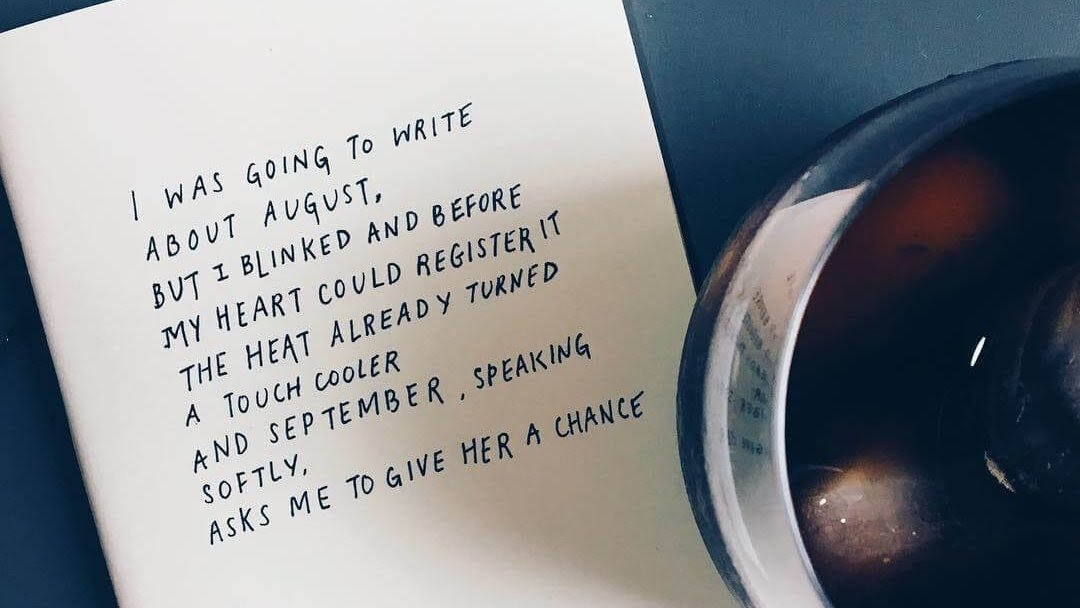 I WAS GOING TO WRITE
ABOUT AUGUST,
BUT I BLINKED AND BEFORE
MY HEART COULD REGISTER IT
THE HEAT ALREADY TURNED
A TOUCH COOLER
AND SEPTEMBER, SPEAKING
SOFTLY,
ASKS ME TO GIVE HER A CHANCE